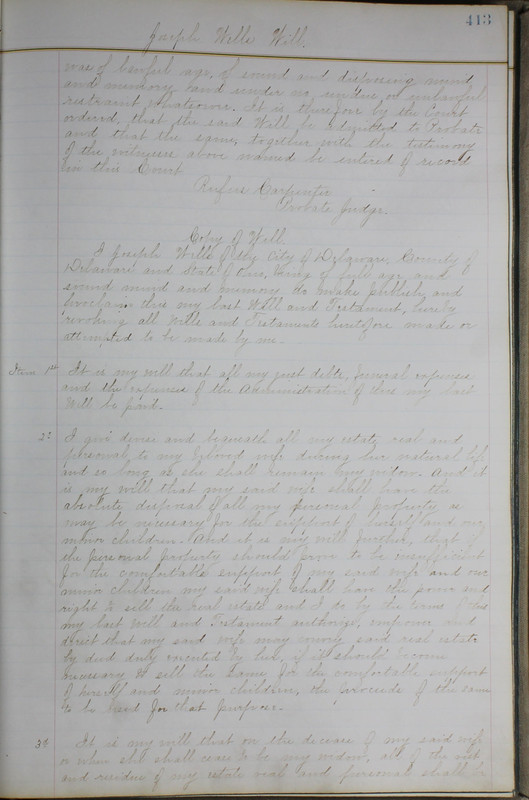 413
Joseph Wells Will.
was of lawful age, of sound and disposing mind
and memory and under no undue or unlawful
restraint whatsoever. It is therefore by the Court
ordered, that the said Will be admitted to Probate
and that the same, together with the testimony
of the witnesses above named be entered of record
in this Court
Rufus Carpenter
Probate Judge.
Copy of Will.
I Joseph Wells of the City of Delaware, County of
Delaware and State of Ohio, being of full age and
sound mind and memory do make publish and
proclaim this my last Will and Testament, hereby
revoking all Wills and Testaments heretofore made or
attempted to be made by me.
Item 1st It is my will that all my just debts, funeral expenses
and the expenses of the Administration of this my last
Will be paid.
2d I give devise and bequeath all my estate real and
personal, to my beloved wife during her natural life
and so long as she shall remain my widow. And it
is my will that my said wife shall have the
absolute disposal of all my personal property as
may be necessary for the support of herself and our
minor children. And it is my will further, that if
the personal property should prove to be insufficient
for the comfortable support of my said wife and our
minor children my said wife shall have the power and
right to sell the real estate and I do by the terms of this
my last Will and Testament authorize, empower and
direct that my said wife may convey said real estate
by deed duly executed by her, if it should become
necessary to sell the same for the comfortable support
of herself and minor children, the proceeds of the same
to be used for that purpose.
3d It is my will that on the decease of my said wife
or when she shall cease to be my widow, all of the rest
and residue of my estate real and personal shall be